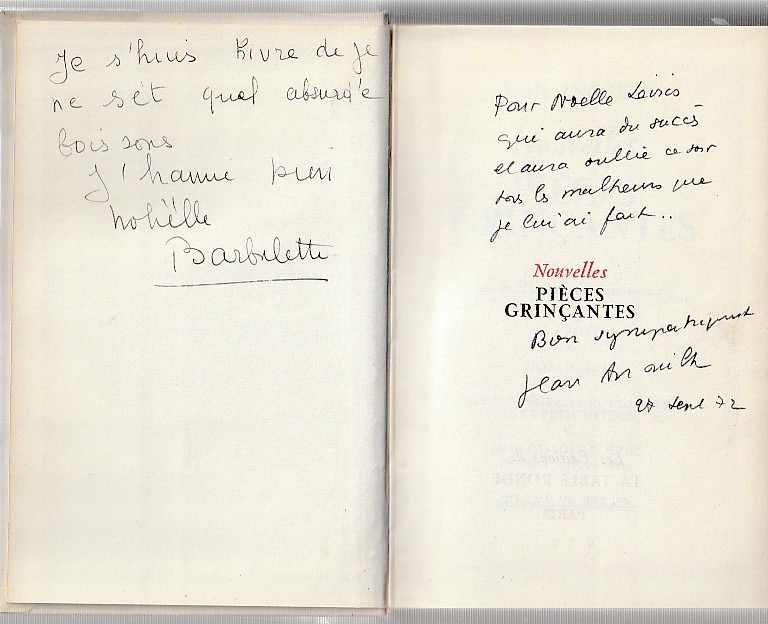 Je s'huis hivre de je
ne sét quel absurd'e
bois sons
J'hamie pien
Nohëlle
Barbulette
Pour Noelle Leiris
qui aura du succès
et aura oublié ce soir
tous les malheurs que
je lui ai fait..
Nouvelles
PIÈCES
GRINÇANTES
Bien sympathiquement
Jean Anouilh
27 sept 72
LA TABLE RONDE
PARIS